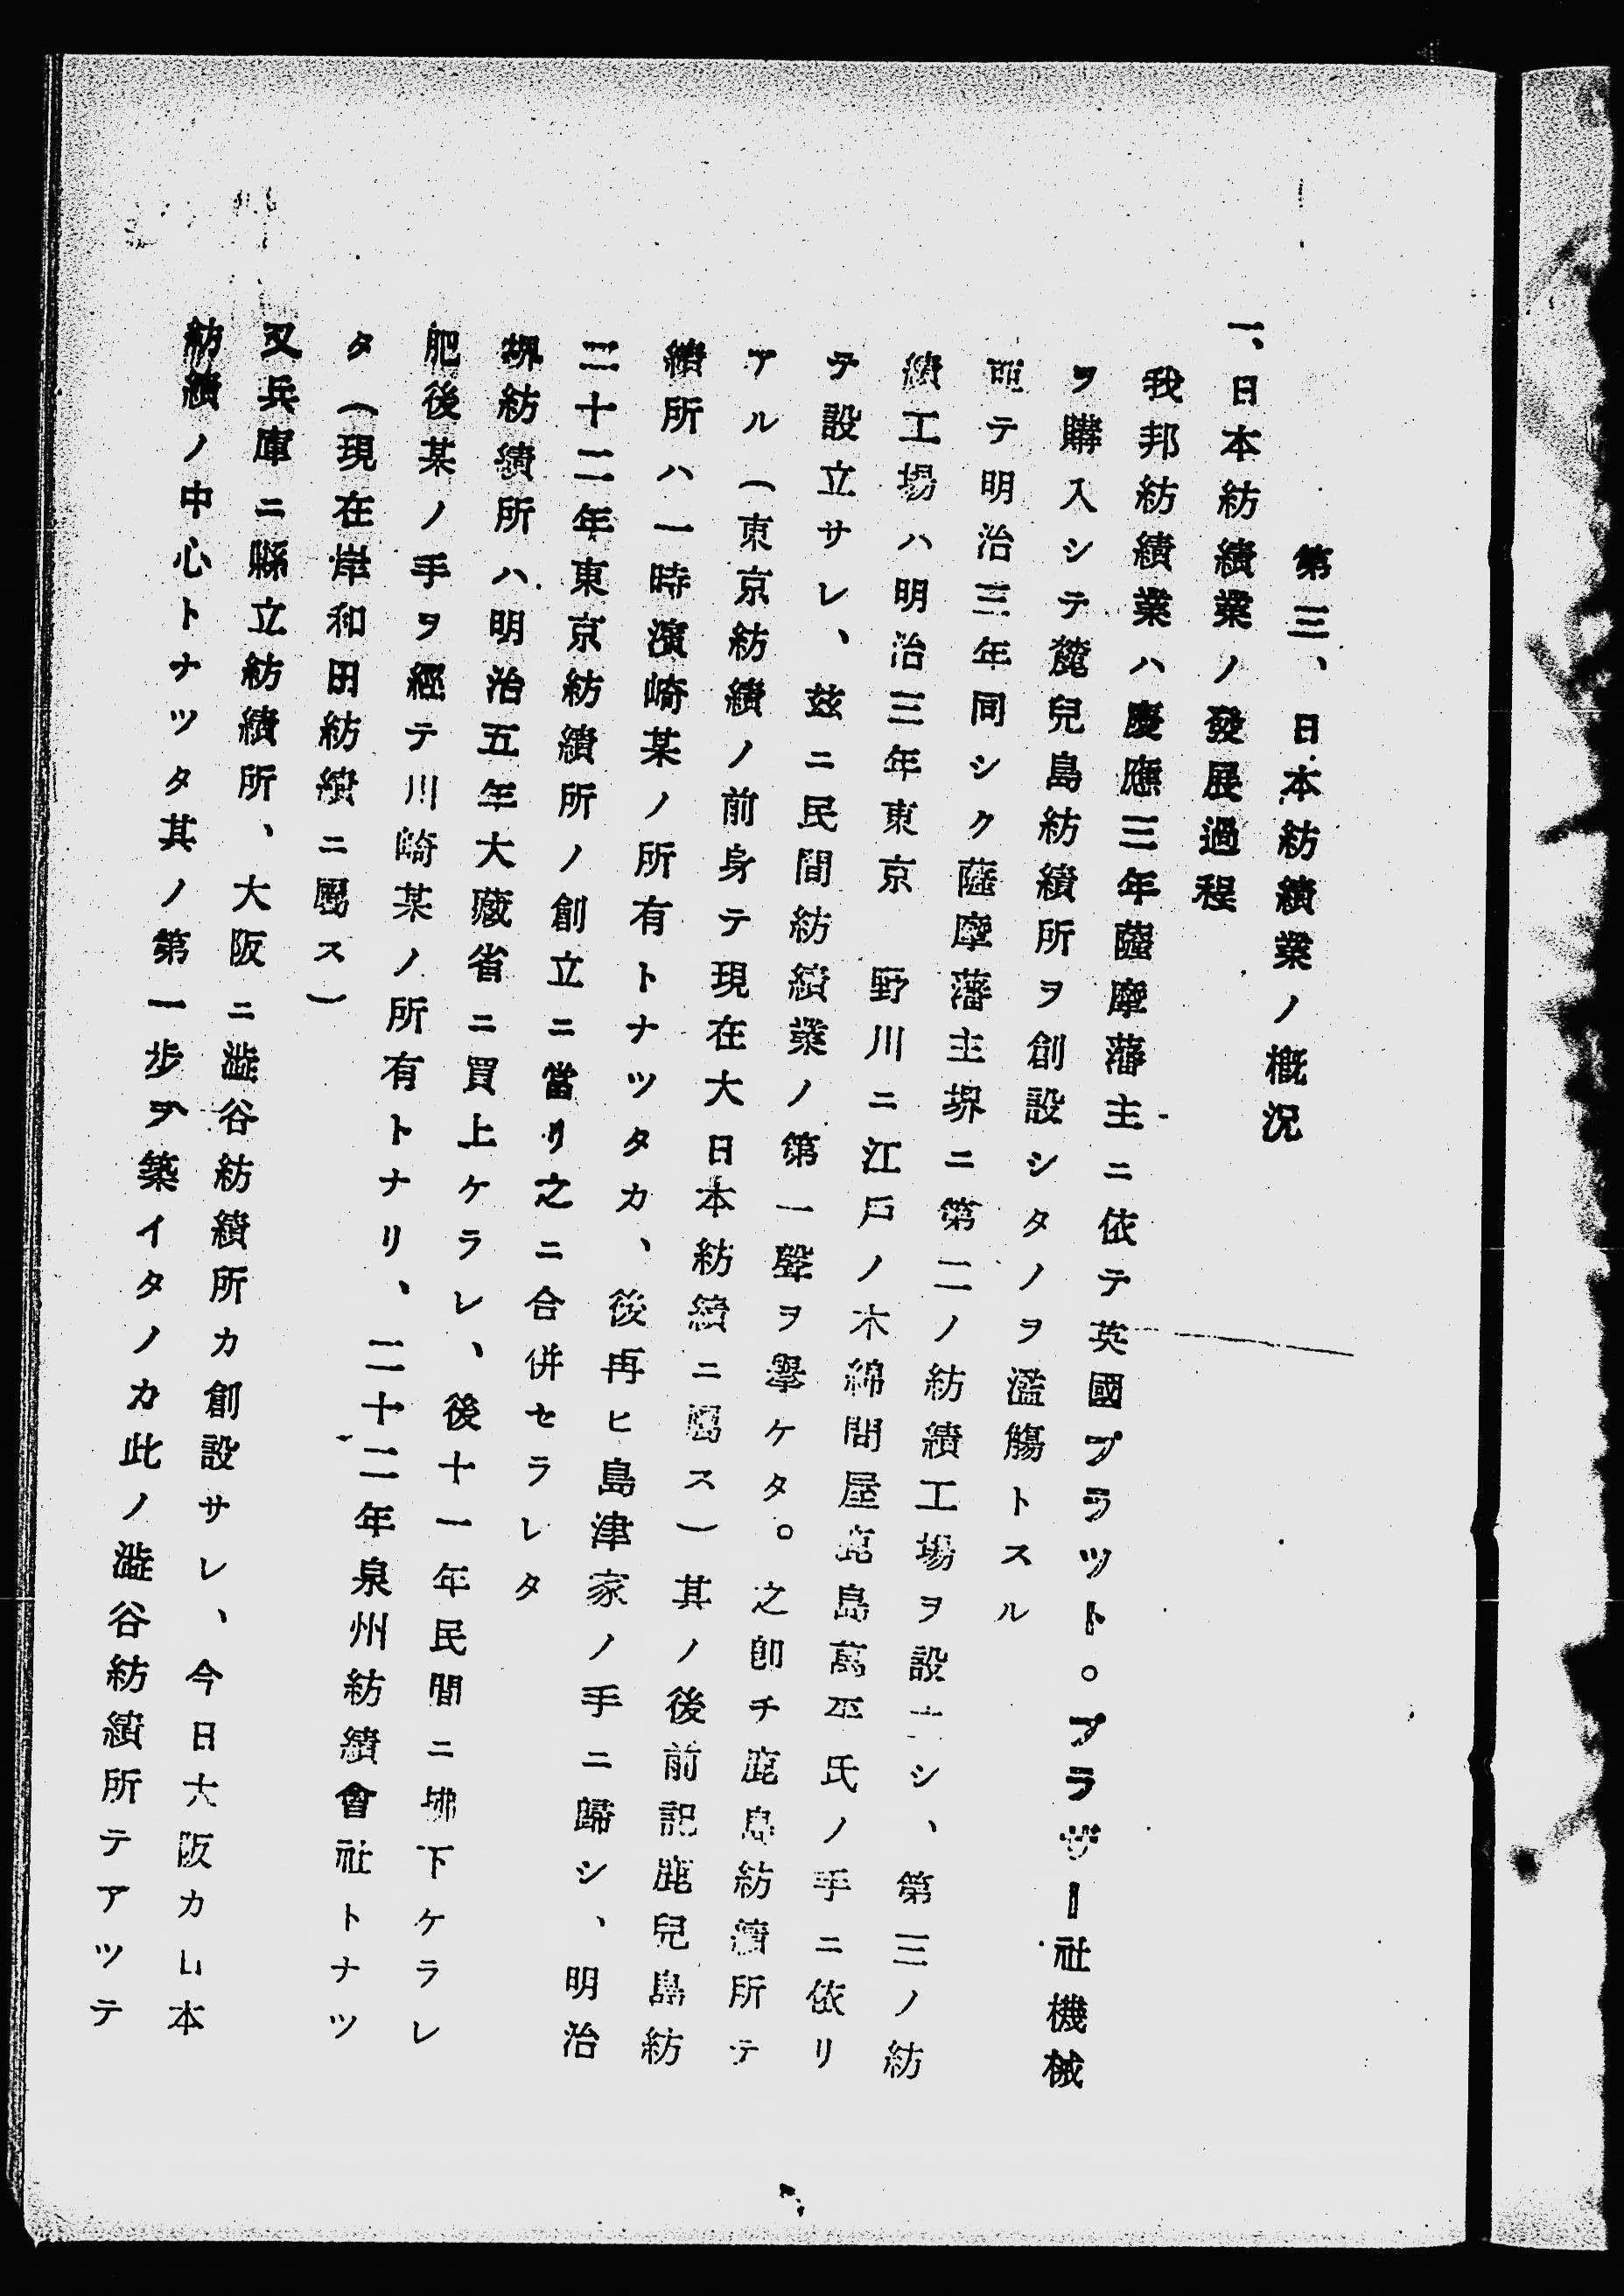 第三、日本紡績業ノ概況
一、日本紡績業ノ發展過程
我邦紡績業ハ慶應三年薩摩藩主ニ依テ英國プラツト。プラザー社機械
ヲ購入シテ麑兒島紡績所ヲ創設シタノヲ濫觴トスル
テ明治三年同シク薩摩藩主堺ニ第二ノ紡績工場ヲ設シ、第三ノ紡
績工場ハ明治三年東京 野川ニ江戸ノ木綿問屋鹿島萬平氏ノ手ニ依リ
テ設立サレ、茲ニ民間紡績業ノ第一聲ヲ擧ケタ。之卽チ鹿島紡績所テ
アル(東京紡績ノ前身テ現在大日本紡績ニ屬ス)其ノ後前記鹿兒島紡
績所ハ一時濱崎某ノ所有トナツタカ、後再ヒ島津家ノ手ニ歸シ、明治
二十二年東京紡績所ノ創立ニ當リ之ニ合併セラレタ
堺紡績所ハ明治五年大藏省ニ買上ケラレ、後十一年民間ニ拂下ケラレ
肥後某ノ手ヲ經テ川崎某ノ所有トナリ、二十二年泉州紡績會社トナツ
タ(現在岸和田紡績ニ屬ス)
又兵庫ニ縣立紡績所、大阪ニ澁谷紡績所カ創設サレ、今日大阪カ日本
紡績ノ中心トナツタ其ノ第一歩ヲ築イタノカ此ノ澁谷紡績所テアツテ